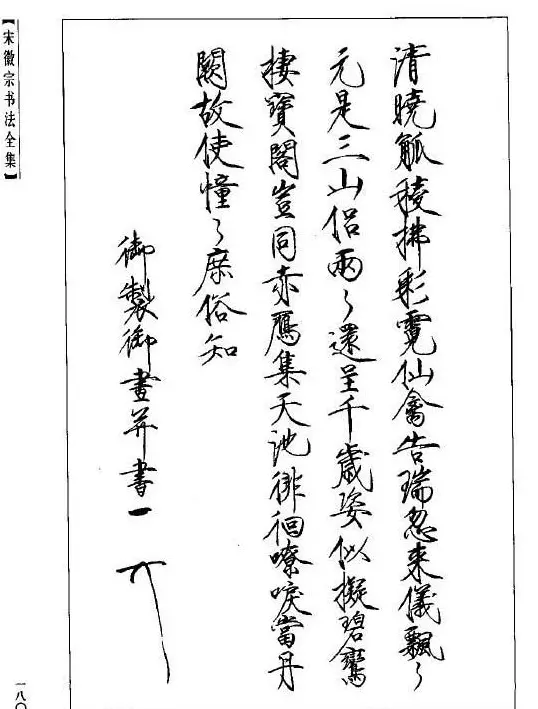 清曉觚稜拂彩霓仙禽告瑞忽來儀飄〻
元是三山侶兩〻還呈千歲姿似擬碧鸞
棲寶閣豈同赤鴈集天池徘徊嘹唳當丹
闕故使憧〻庶俗知
御製御畫并書
【宋徽宗书法全集】
一八〇